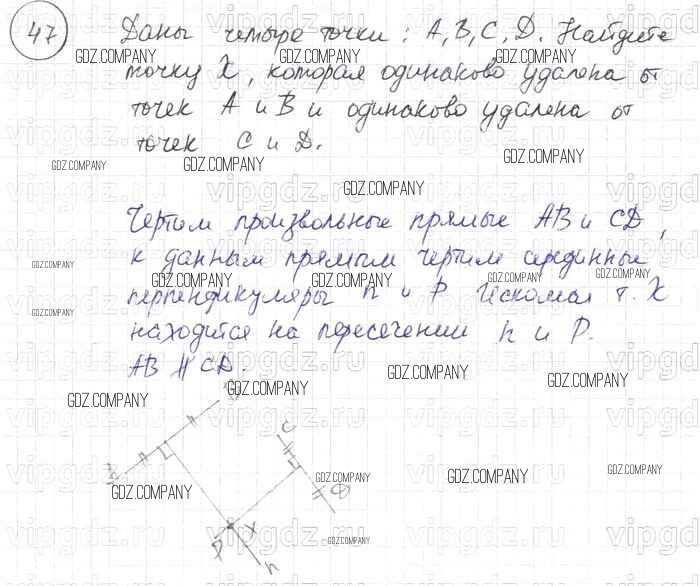 47
Даны четыре точки: A, B, C, D. Найдите
точку X, которая одинаково удалена от
точек A и B и одинаково удалена от
точек C и D.
Чертим произвольные прямые AB и CD,
к данным прямым чертим серединные
перпендикуляры n и P. Искомая т. X
находится на пересечении n и P.
AB ∦ CD.
C
D
X
P
n
GDZ.COMPANY
vipgdz.ru